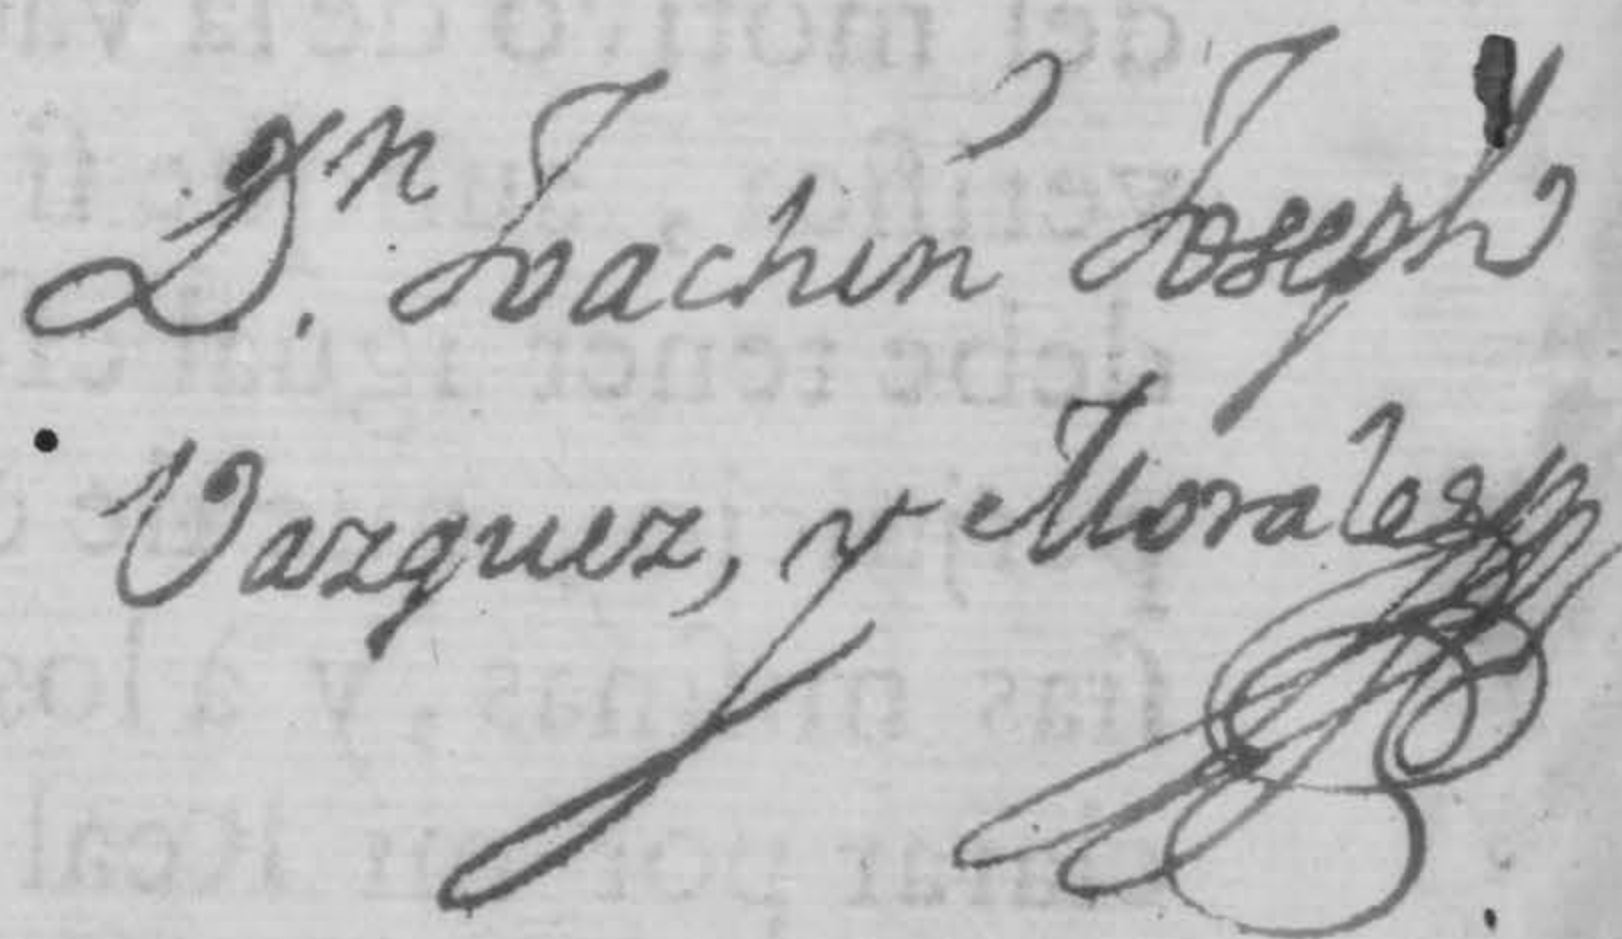 Dn. Joachin Joseph
Vazquez, y Morales